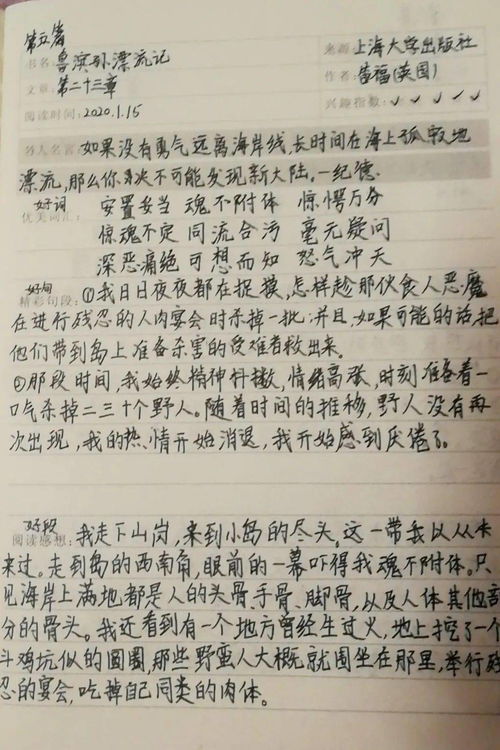 第五篇
书名: 鲁滨孙漂流记
来源: 上海大学出版社
文章: 第二十三章
作者: 笛福(英国)
阅读时间: 2020.1.15
兴趣指数: ✓ ✓ ✓ ✓ ✓
名人名言: 如果没有勇气远离海岸线,长时间在海上孤寂地
漂流,那么你决不可能发现新大陆。—纪德.
好词
优美词汇: 安置妥当 魂不附体 惊愕万分
惊魂不定 同流合污 毫无疑问
深恶痛绝 可想而知 怒气冲天
好句
精彩句段: ①我日日夜夜都在捉摸,怎样趁那伙食人恶魔
在进行残忍的人肉宴会时杀掉一批;并且,如果可能的话,把
他们带到岛上准备杀害的受难者救出来。
②那段时间,我始终精神抖擞,情绪高涨,时刻准备着一
口气杀掉二三十个野人。随着时间的推移,野人没有再
次出现,我的热情开始消退,我开始感到厌倦了。
好段
阅读感想: 我走下山岗,来到小岛的尽头。这一带我以从未
来过。走到岛的西南角,眼前的一幕吓得我魂不附体。只
见海岸上满地都是人的头骨、手骨、脚骨,以及人体其他部
分的骨头。我还看到有一个地方曾经生过火,地上挖了一个
斗鸡坑似的圆圈,那些野蛮人大概就围坐在那里,举行残
忍的宴会,吃掉自己同类的肉体。